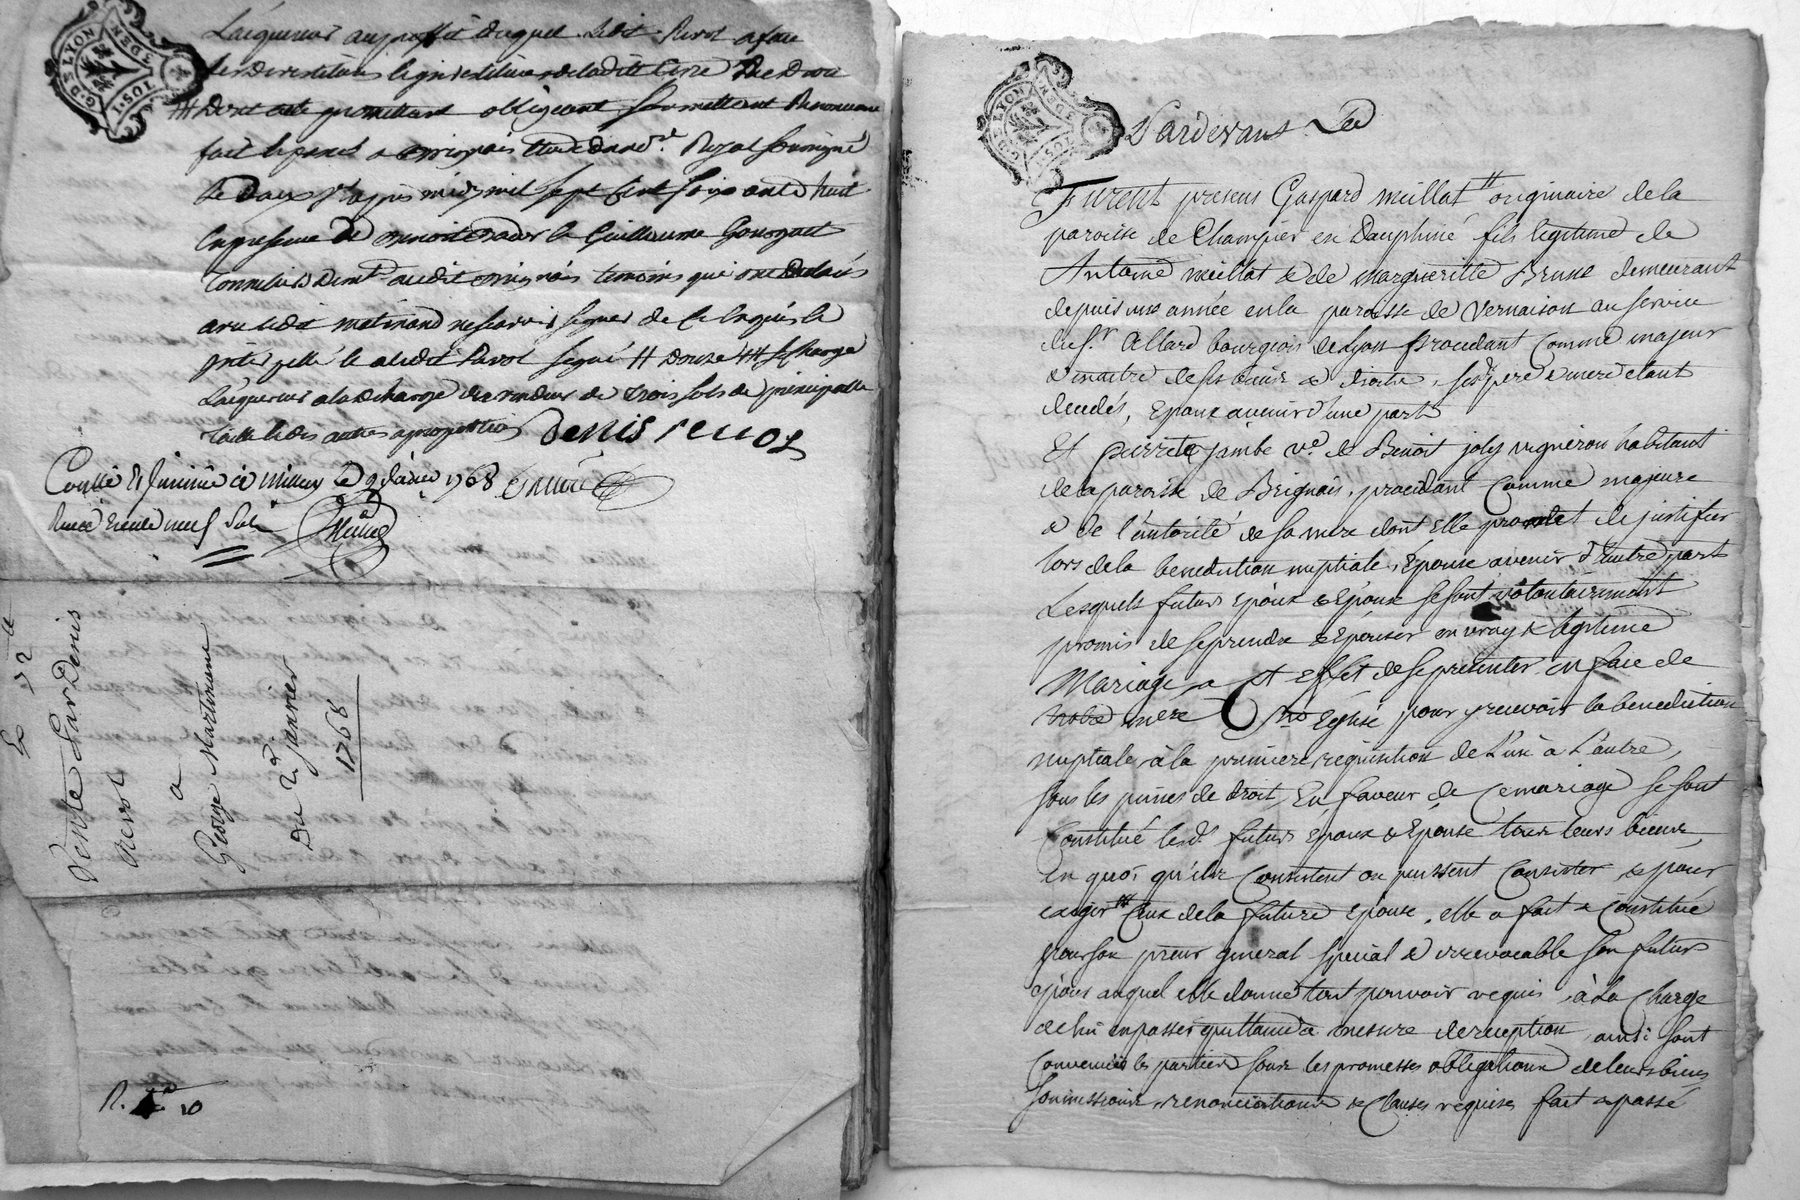 G. DE LYON
DEN
10 S. 1
L'acquereur au proffit duquel ledit Revol a fait
les devestitures
dont acte promettant obligeant soumettant Renonceant
fait et passé a Brignais Etude du no.re Royal soussigné
le deux J.er apres midy mil sept cent soixante huit
En presence de Guillaume
Tonnelier demt. audit Brignais temoins qui ont
avec ledit martinand ne scavoir signer de ce Enquis le
ledit Revol signé douze
L'acquereur a la decharge du vendeur de trois sols de principalle
taille et des autres a proportion Denis revol
Conllé & Insinué à Millery le 9 Janvier 1768
Receu trente neuf sols
Vente Par Denis
Revol
a
George Martinand
Du 2.d janvier
1768
R. 10
G. DE LYON
DEN
Pardevant
Furent presens Gaspard meillat originaire de la
paroisse de Champier en Dauphiné fils legitime de
Antoine meillat & de margueritte Brune demeurant
depuis une année en la paroisse de Vernaison au service
du S.r Allard bourgeois de Lyon procedant comme majeur
& maitre de ses biens & droits, ses pere & mere etant
decedés, Epoux avenir d'une part
Et pierrete jambe v.e de Benoit joly vigneron habitant
de la paroisse de Brignais, procedant comme majeure
& de l'autorité de sa mere dont elle promet de justifier
lors de la benediction nuptiale, Epouse avenir d'autre part
Lesquels futurs Epoux & Epouse se sont volontairement
promis de se prendre & Epouser en vray & legitime
Mariage, a cet effet de se presenter en face de
notre mere Ste Eglise pour y recevoir la benediction
nuptiale à la premiere requisition de L'un à L'autre,
sous les peines de droit, En faveur de Ce mariage se sont
Constitué lesd. futurs Epoux & Epouse tous leurs biens,
En quoi qu'ils Consistent ou puissent Consister & pour
exiger Ceux de la future Epouse, elle a fait & Constitué
pour son preur general special & irrevocable son futur
époux auquel elle donne tout pouvoir requis, à La Charge
de lui en passer quittance a mesure de reception, ainsi sont
Convenues les parties sous les promesses obligations de leurs biens
soumissions, renonciations & clauses requises fait & passé